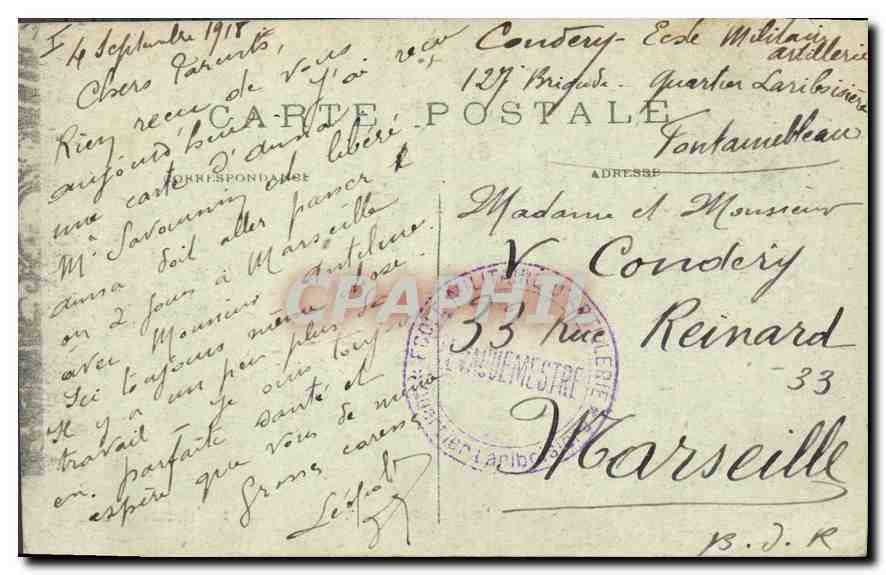 4 Septembre 1918
Chers Parents,
Rien reçu de vous
aujourd'hui. J'ai reçu
une carte d'Anna
Mr Savournin est libéré
Anna doit aller passer 1
ou 2 jours à Marseille
avec Monsieur
Ici toujours même chose.
Il y a un peu plus de
travail - Je suis toujours
en parfaite santé et
espère que vous de même
Grosses caresses
Léopold
Condéry - Ecole Militaire
artillerie
127e Brigade - Quartier Lariboisière
Fontainebleau
CARTE POSTALE
CORRESPONDANCE
ADRESSE
Madame et Monsieur
V Condéry
33 Rue Reinard
33
Marseille
B. d. R
ECOLE MILITAIRE D'ARTILLERIE
VAGUEMESTRE
Quartier Lariboisière
CPAPHIL